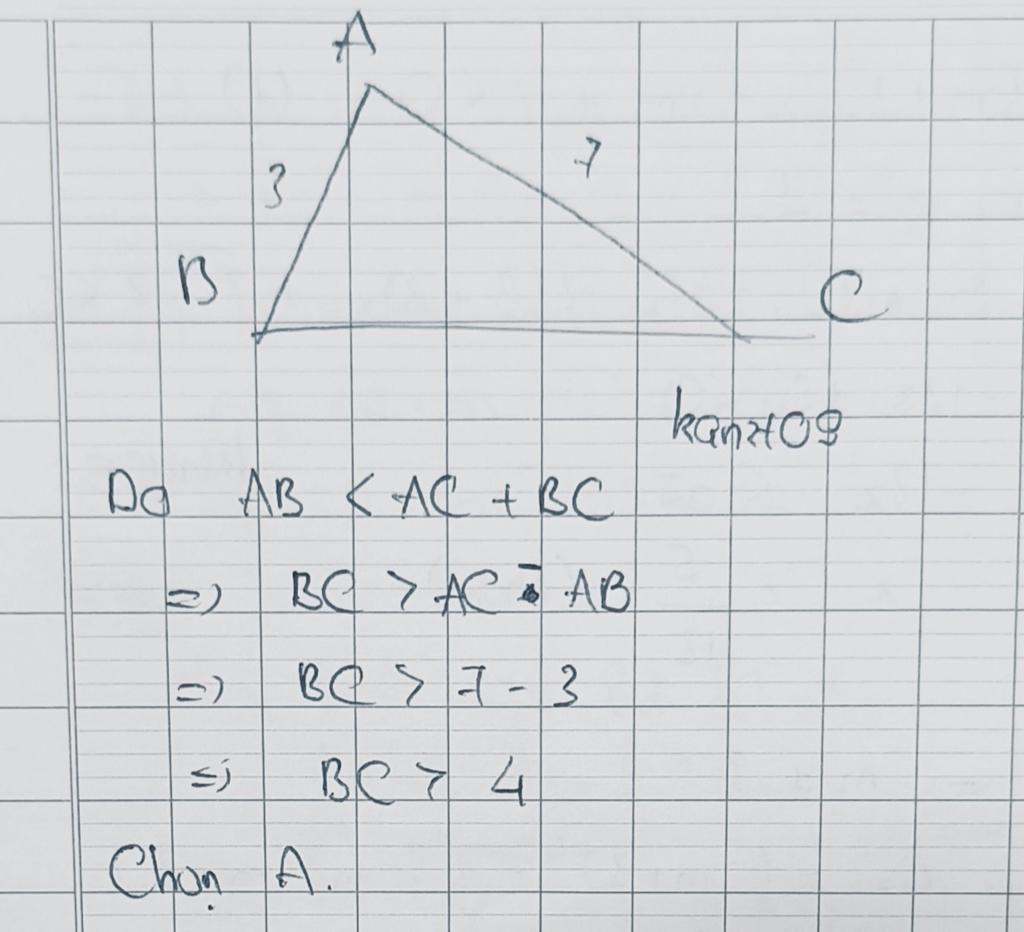 A
3
7
B
C
kanzt09
Do AB < AC + BC
=> BC > AC - AB
=> BC > 7 - 3
=> BC > 4
Chọn A.